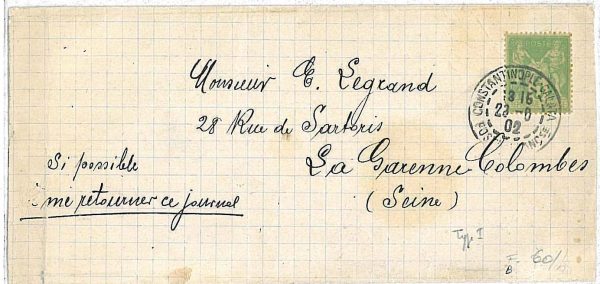 Monsieur E. Legrand
28 Rue de Sartoris
La Garenne-Colombes
(Seine)
Si possible
me retourner ce journal
CONSTANTINOPLE-GALATA
02
Type I
60/